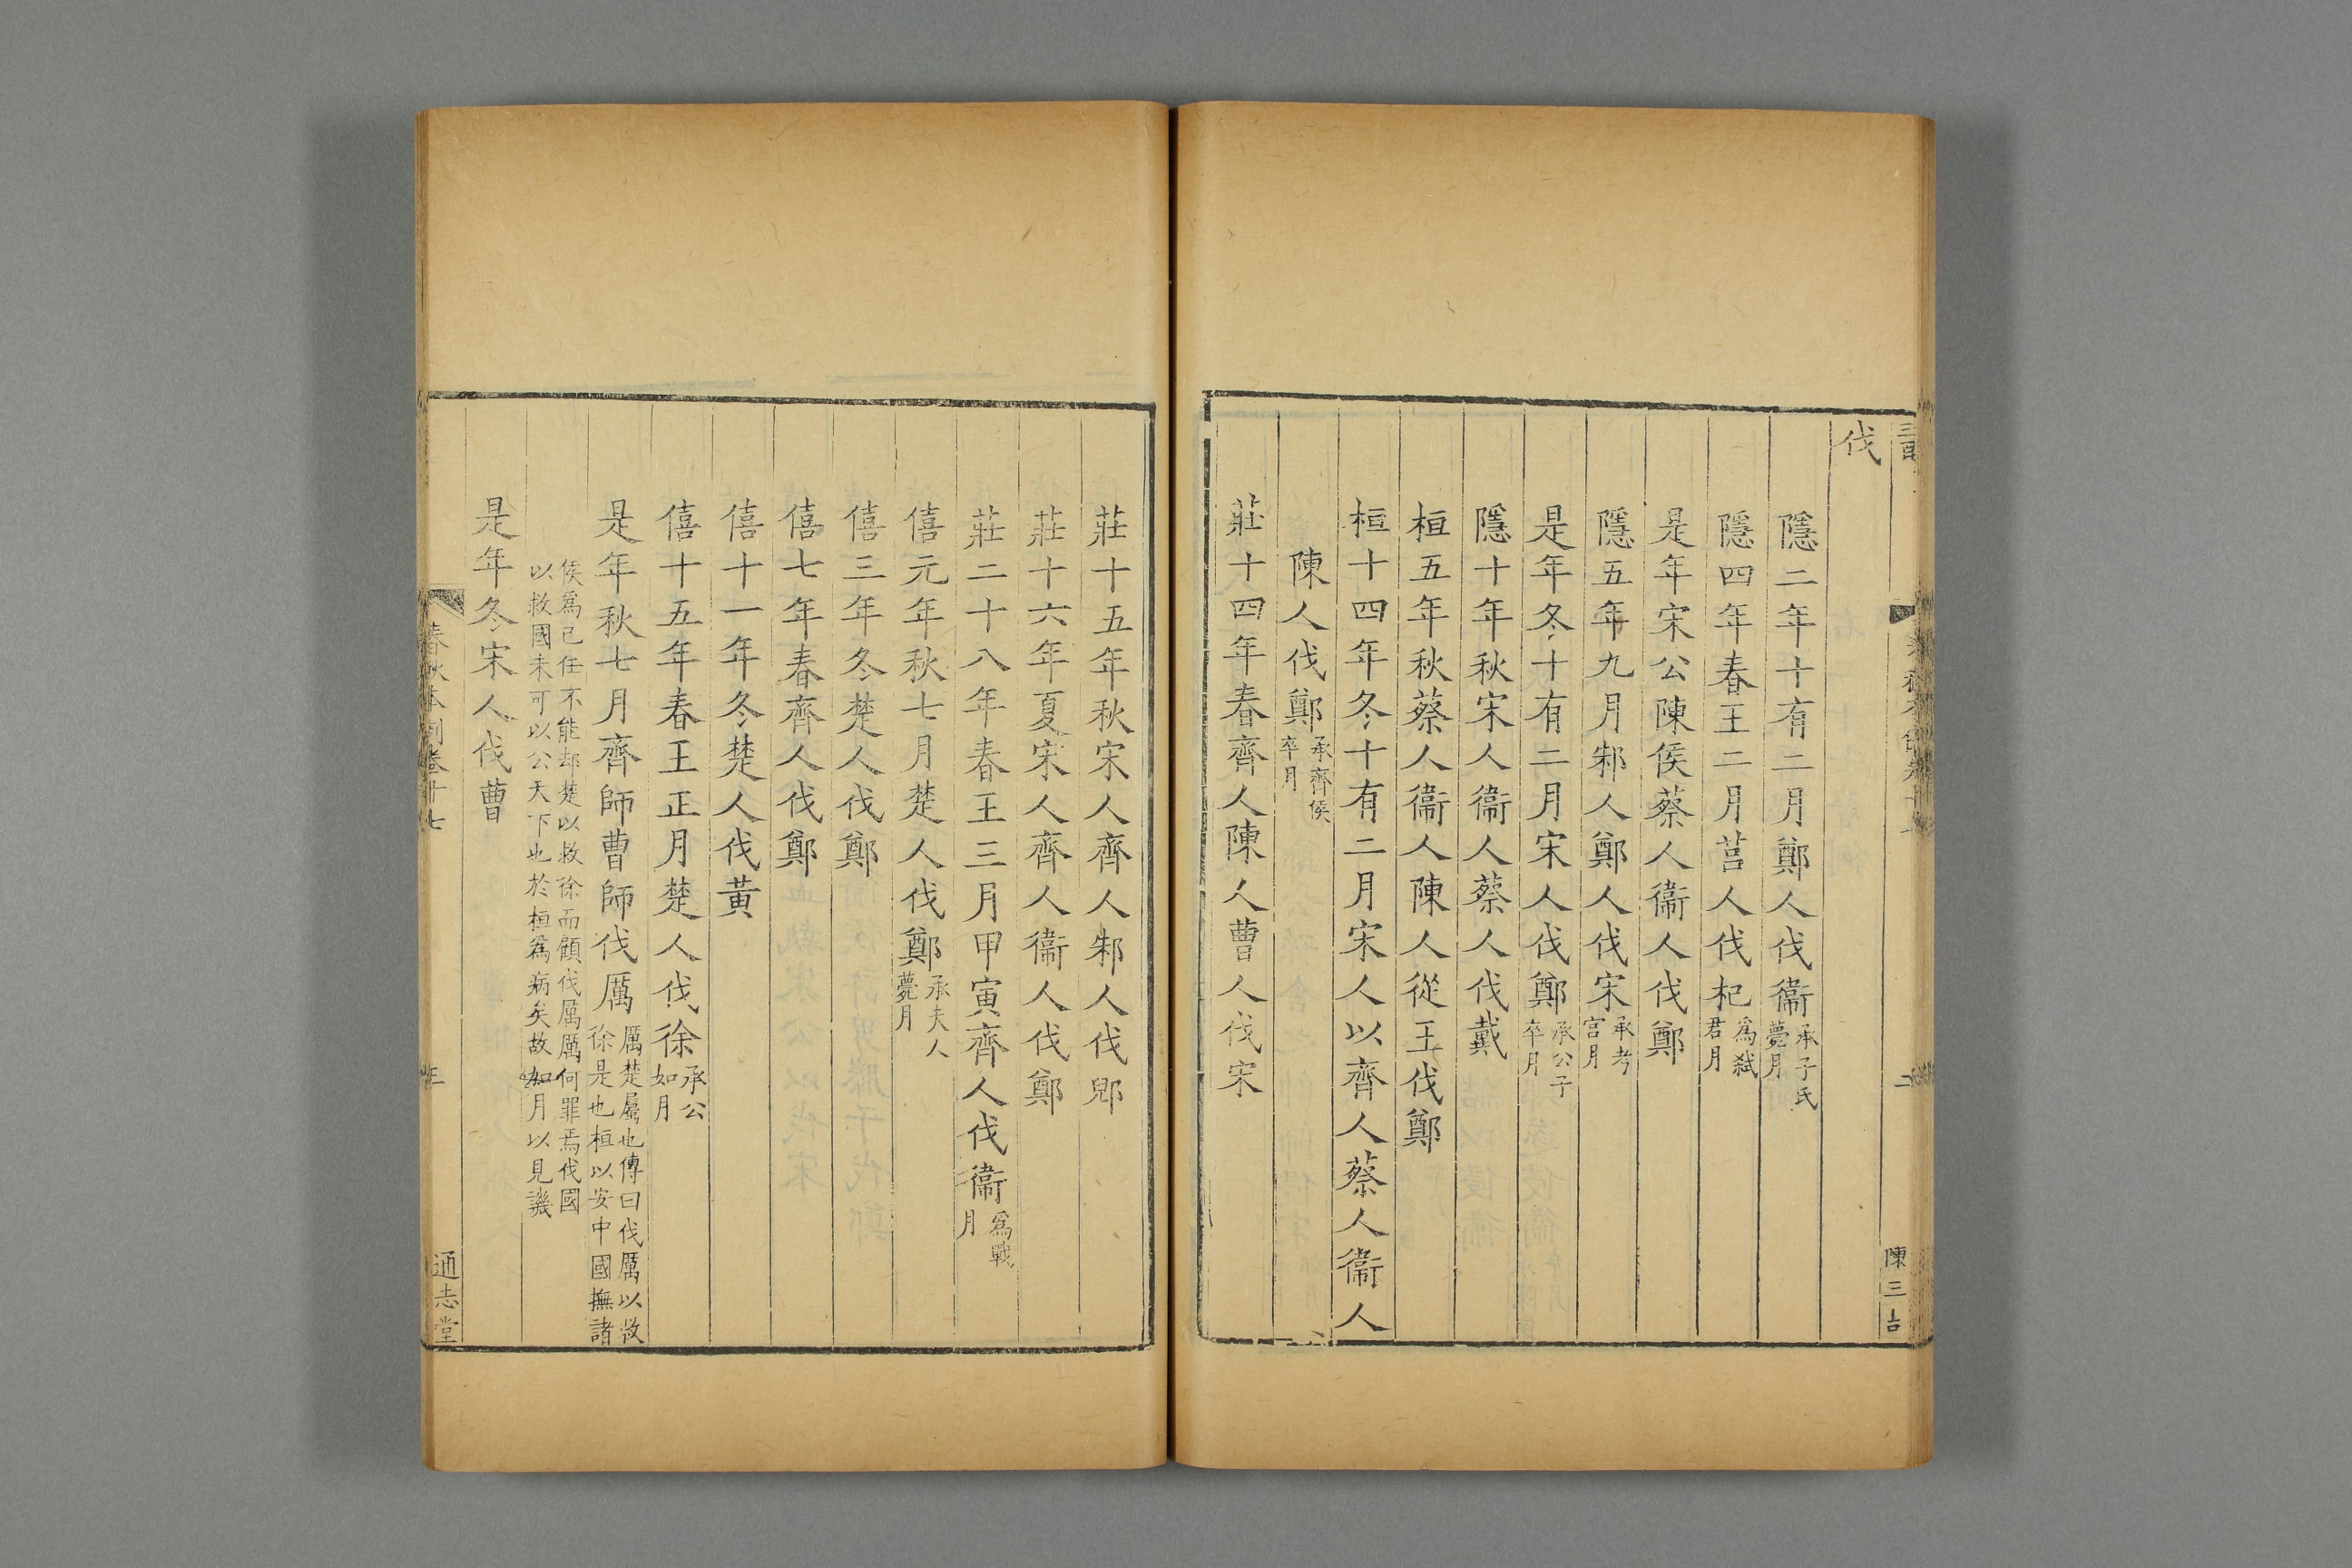 伐
隱二年十有二月鄭人伐衞承子氏薨月
隱四年春王二月莒人伐杞為弑君月
是年宋公陳侯蔡人衞人伐鄭
隱五年九月邾人鄭人伐宋承考宫月
是年冬十有二月宋人伐鄭承公子卒月
隱十年秋宋人衞人蔡人伐戴
桓五年秋蔡人衞人陳人從王伐鄭
桓十四年冬十有二月宋人以齊人蔡人衞人
陳人伐鄭承齊侯卒月
莊十四年春齊人陳人曹人伐宋
二
陳三吉
莊十五年秋宋人齊人邾人伐郳
莊十六年夏宋人齊人衞人伐鄭
莊二十八年春王三月甲寅齊人伐衞為戰月
僖元年秋七月楚人伐鄭承夫人薨月
僖三年冬楚人伐鄭
僖七年春齊人伐鄭
僖十一年冬楚人伐黄
僖十五年春王正月楚人伐徐承公如月
是年秋七月齊師曹師伐厲厲楚屬也傳曰伐厲以救徐是也桓以安中國撫諸
侯為己任不能却楚以救徐而顧伐厲厲何罪焉伐國以救國未可以公天下也於桓為病矣故如月以見譏
是年冬宋人伐曹
春秋本例卷十七
三
通志堂